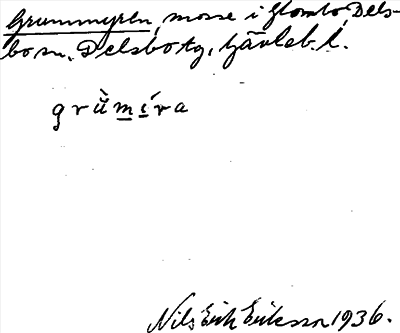 Grummyren, mosse i Glombo, Dels-
bo sn, Delsbo tg, Gävleb. l.
grùmíra
Nils Erik Eriksson 1936.